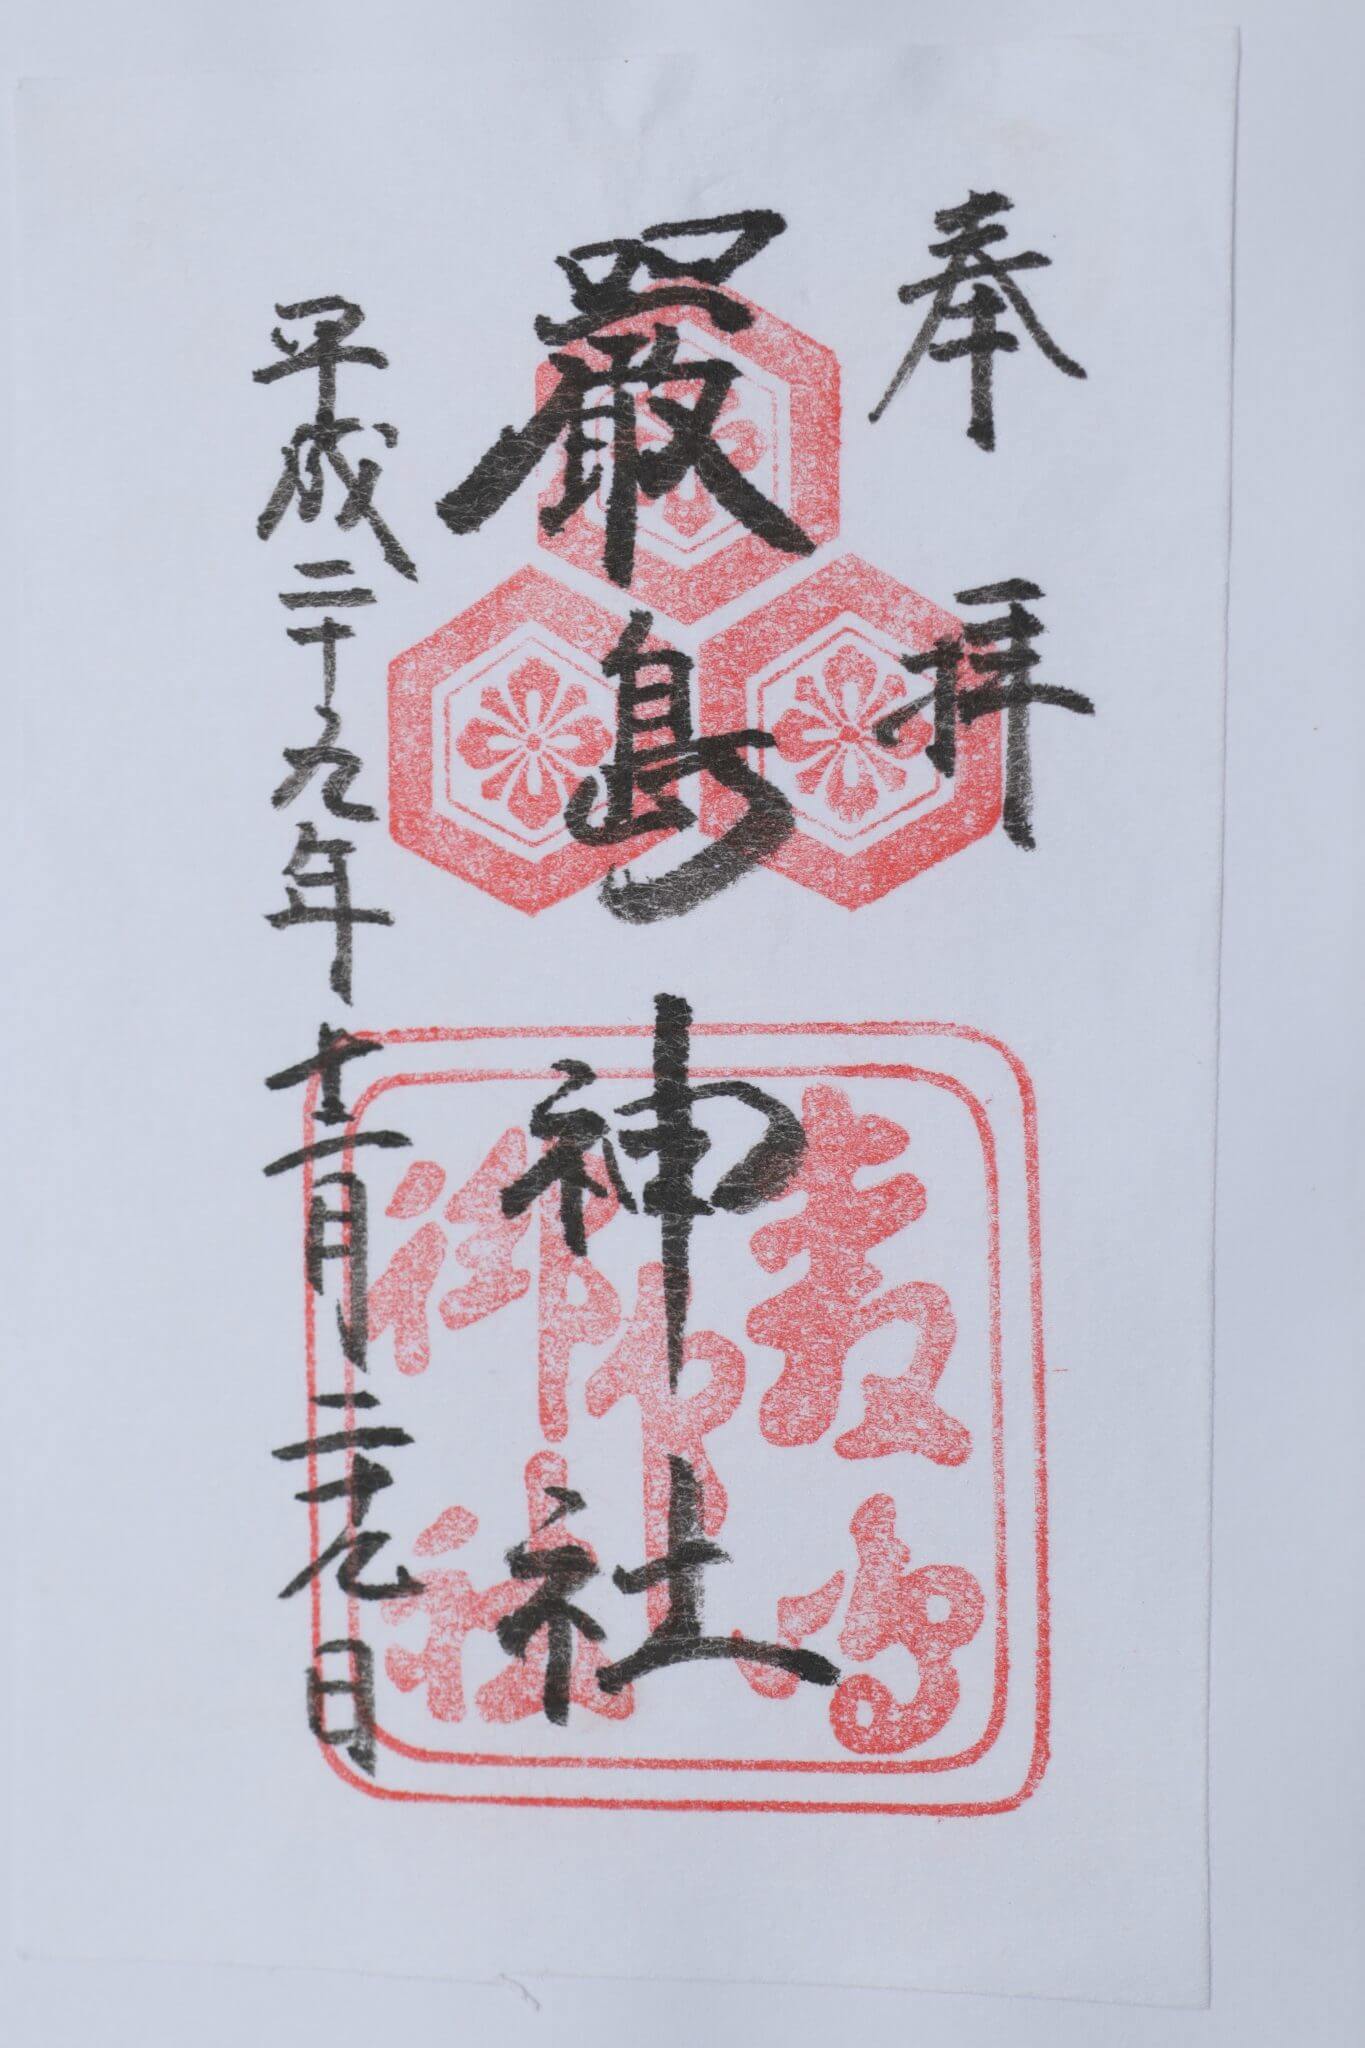 奉拝
嚴島神社
平成二十九年十二月二十九日